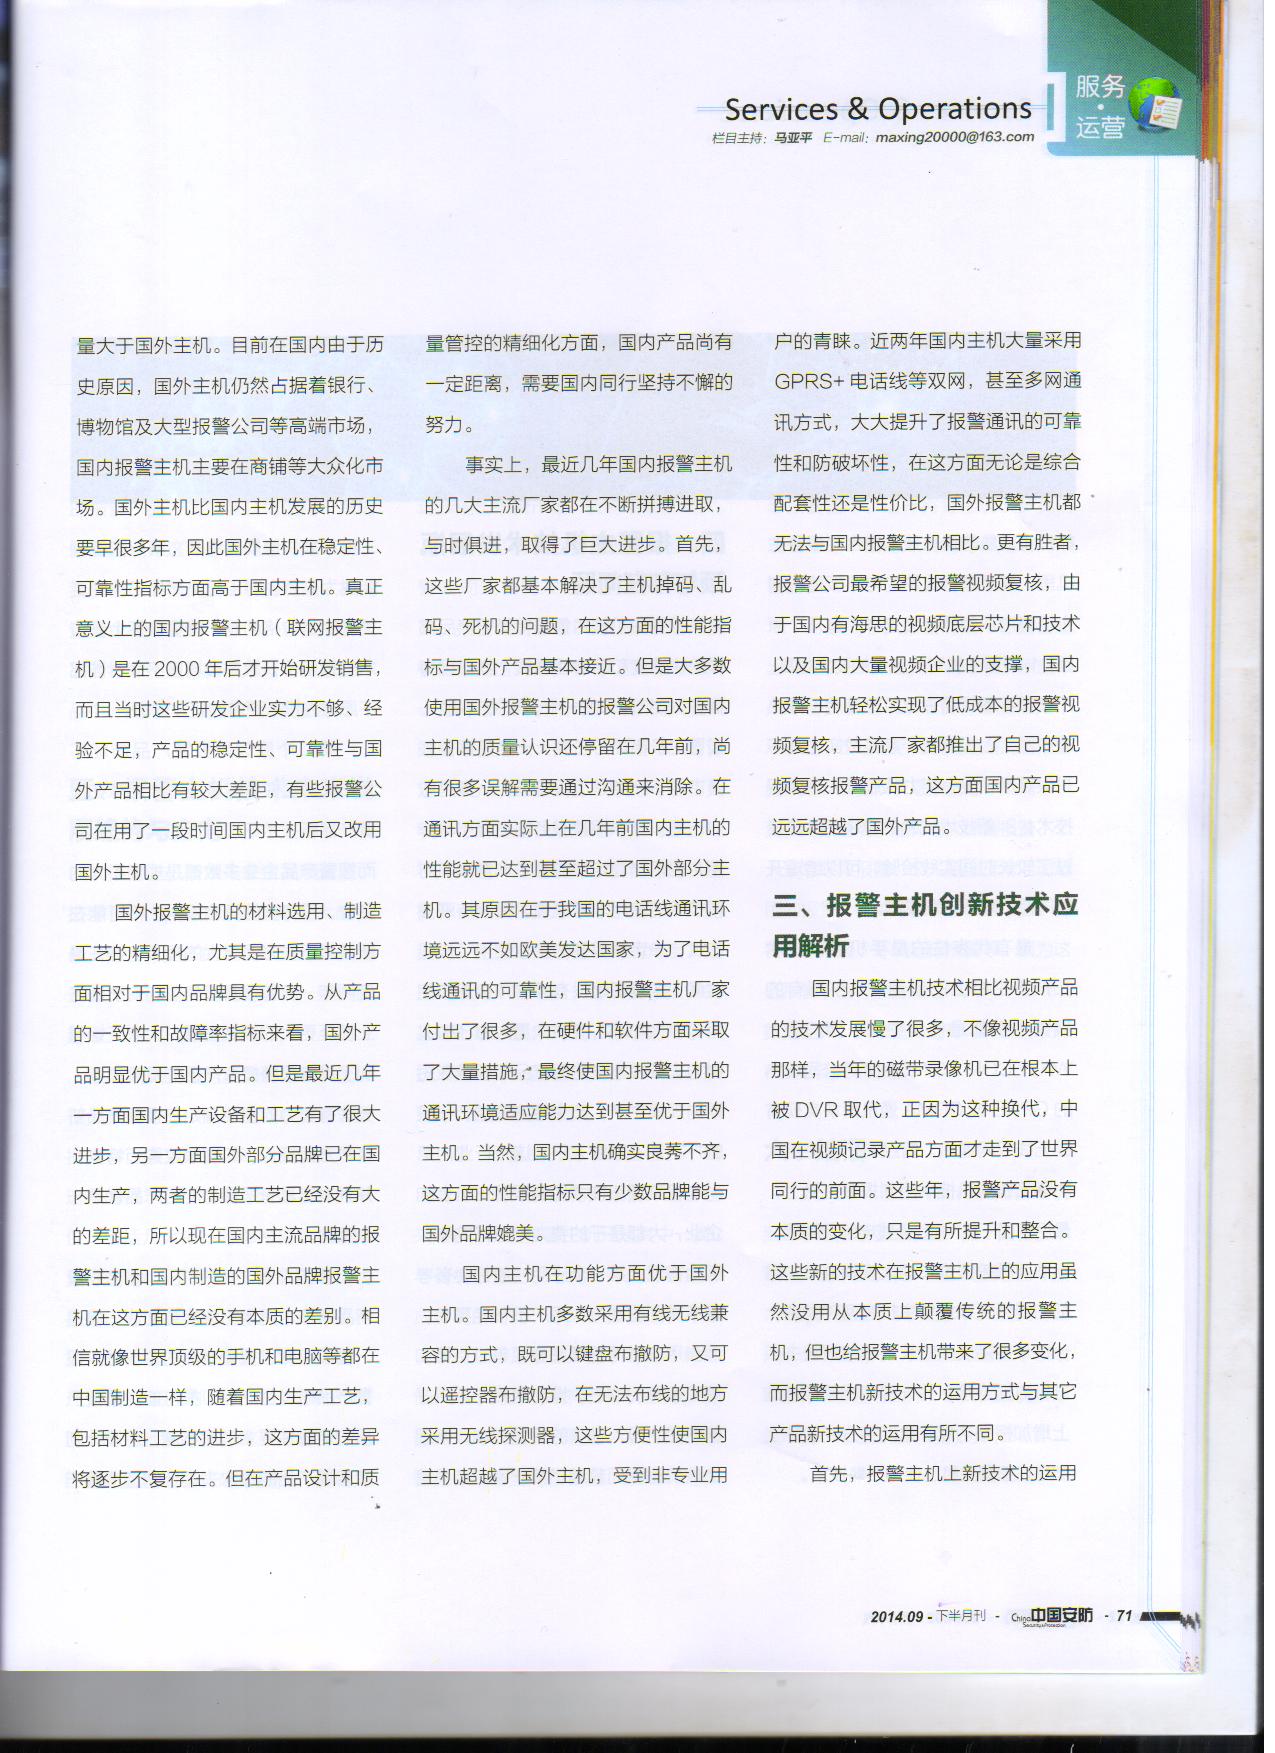 服务
·
运营
Services & Operations
栏目主持：马亚平 E-mail：maxing20000@163.com
量大于国外主机。目前在国内由于历
史原因，国外主机仍然占据着银行、
博物馆及大型报警公司等高端市场，
国内报警主机主要在商铺等大众化市
场。国外主机比国内主机发展的历史
要早很多年，因此国外主机在稳定性、
可靠性指标方面高于国内主机。真正
意义上的国内报警主机（联网报警主
机）是在2000年后才开始研发销售，
而且当时这些研发企业实力不够、经
验不足，产品的稳定性、可靠性与国
外产品相比有较大差距，有些报警公
司在用了一段时间国内主机后又改用
国外主机。
国外报警主机的材料选用、制造
工艺的精细化，尤其是在质量控制方
面相对于国内品牌具有优势。从产品
的一致性和故障率指标来看，国外产
品明显优于国内产品。但是最近几年
一方面国内生产设备和工艺有了很大
进步，另一方面国外部分品牌已在国
内生产，两者的制造工艺已经没有大
的差距，所以现在国内主流品牌的报
警主机和国内制造的国外品牌报警主
机在这方面已经没有本质的差别。相
信就像世界顶级的手机和电脑等都在
中国制造一样，随着国内生产工艺，
包括材料工艺的进步，这方面的差异
将逐步不复存在。但在产品设计和质
量管控的精细化方面，国内产品尚有
一定距离，需要国内同行坚持不懈的
努力。
事实上，最近几年国内报警主机
的几大主流厂家都在不断拼搏进取，
与时俱进，取得了巨大进步。首先，
这些厂家都基本解决了主机掉码、乱
码、死机的问题，在这方面的性能指
标与国外产品基本接近。但是大多数
使用国外报警主机的报警公司对国内
主机的质量认识还停留在几年前，尚
有很多误解需要通过沟通来消除。在
通讯方面实际上在几年前国内主机的
性能就已达到甚至超过了国外部分主
机。其原因在于我国的电话线通讯环
境远远不如欧美发达国家，为了电话
线通讯的可靠性，国内报警主机厂家
付出了很多，在硬件和软件方面采取
了大量措施，最终使国内报警主机的
通讯环境适应能力达到甚至优于国外
主机。当然，国内主机确实良莠不齐，
这方面的性能指标只有少数品牌能与
国外品牌媲美。
国内主机在功能方面优于国外
主机。国内主机多数采用有线无线兼
容的方式，既可以键盘布撤防，又可
以遥控器布撤防，在无法布线的地方
采用无线探测器，这些方便性使国内
主机超越了国外主机，受到非专业用
户的青睐。近两年国内主机大量采用
GPRS+电话线等双网，甚至多网通
讯方式，大大提升了报警通讯的可靠
性和防破坏性，在这方面无论是综合
配套性还是性价比，国外报警主机都
无法与国内报警主机相比。更有胜者，
报警公司最希望的报警视频复核，由
于国内有海思的视频底层芯片和技术
以及国内大量视频企业的支撑，国内
报警主机轻松实现了低成本的报警视
频复核，主流厂家都推出了自己的视
频复核报警产品，这方面国内产品已
远远超越了国外产品。
三、报警主机创新技术应
用解析
国内报警主机技术相比视频产品
的技术发展慢了很多，不像视频产品
那样，当年的磁带录像机已在根本上
被DVR取代，正因为这种换代，中
国在视频记录产品方面才走到了世界
同行的前面。这些年，报警产品没有
本质的变化，只是有所提升和整合。
这些新的技术在报警主机上的应用虽
然没用从本质上颠覆传统的报警主
机，但也给报警主机带来了很多变化，
而报警主机新技术的运用方式与其它
产品新技术的运用有所不同。
首先，报警主机上新技术的运用
2014.09 - 下半月刊 - China 中国安防 Security&Protection - 71